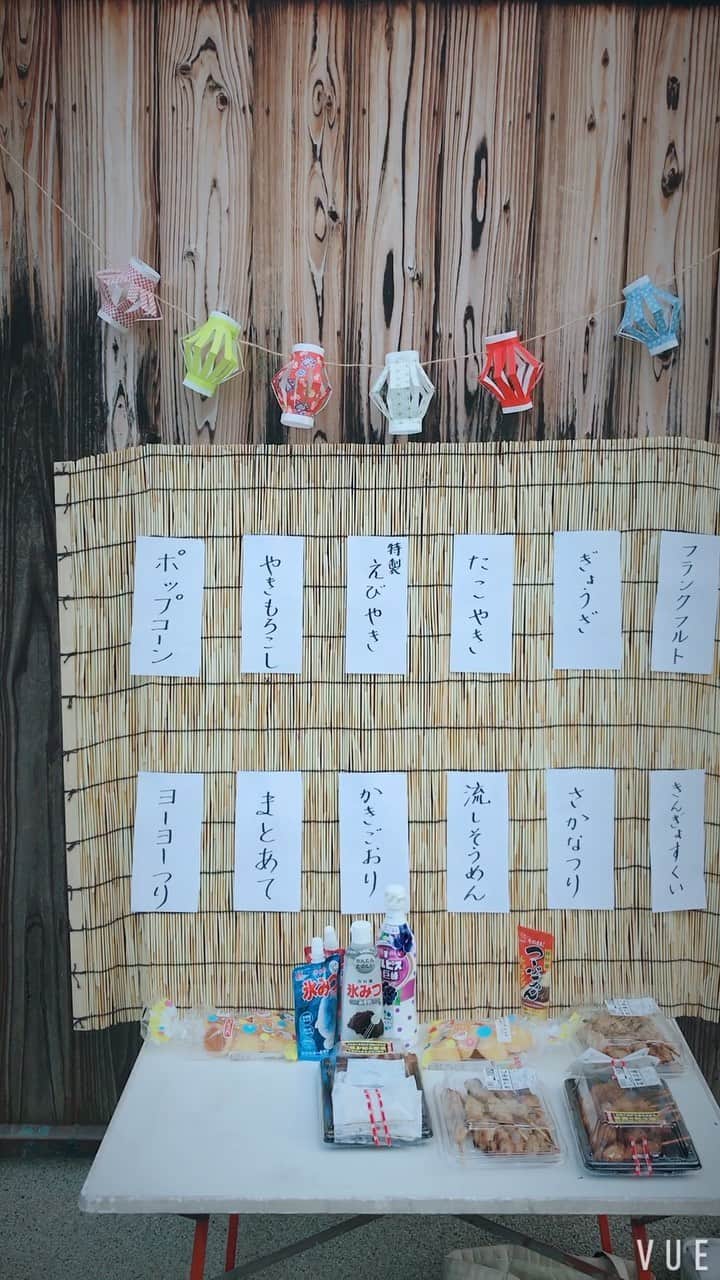 フランクフルト
ぎょうざ
たこやき
特製
えびやき
やきもろこし
ポップコーン
きんぎょすくい
さかなつり
流しそうめん
かきごおり
まとあて
ヨーヨーつり
氷みつ
氷みつ
VUE